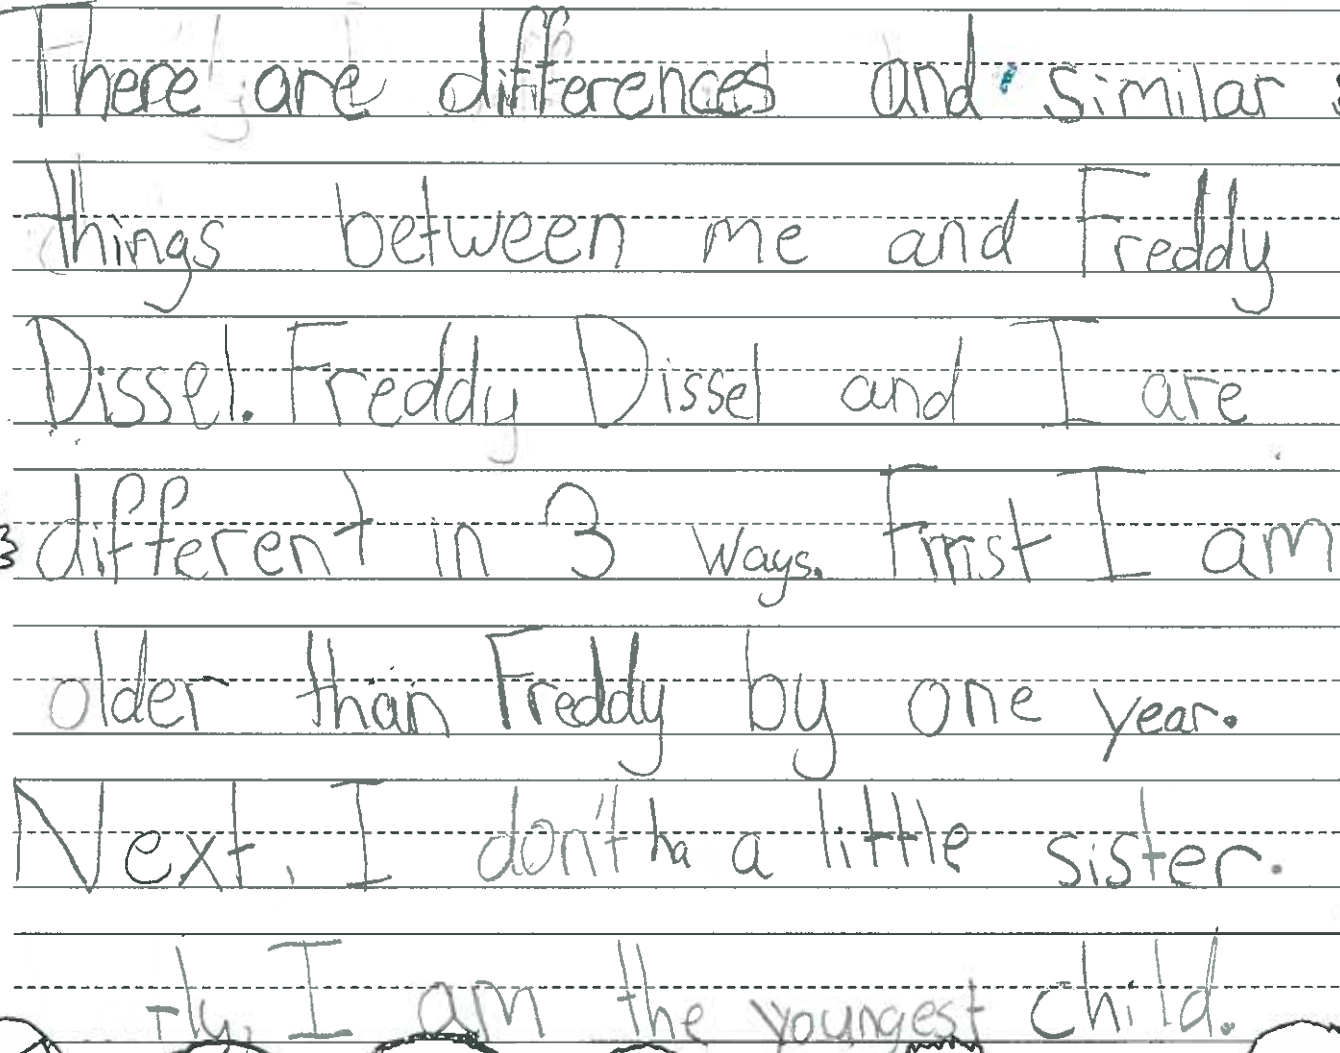 There are differences and similar
things between me and Freddy
Dissel. Freddy Dissel and I are
different in 3 ways. First I am
older than Freddy by one year.
Next, I don't ha a little sister.
I am the youngest child.